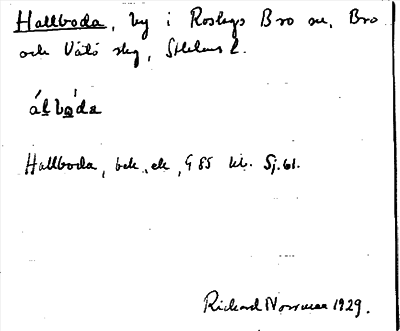 Hallboda, by i Roslags Bro sn, Bro
och Vätö slg, Sthlms l.
álbóda
Hallboda, bek. ek, G 85 kl. Sj. 61.
Richard Norrman 1929.